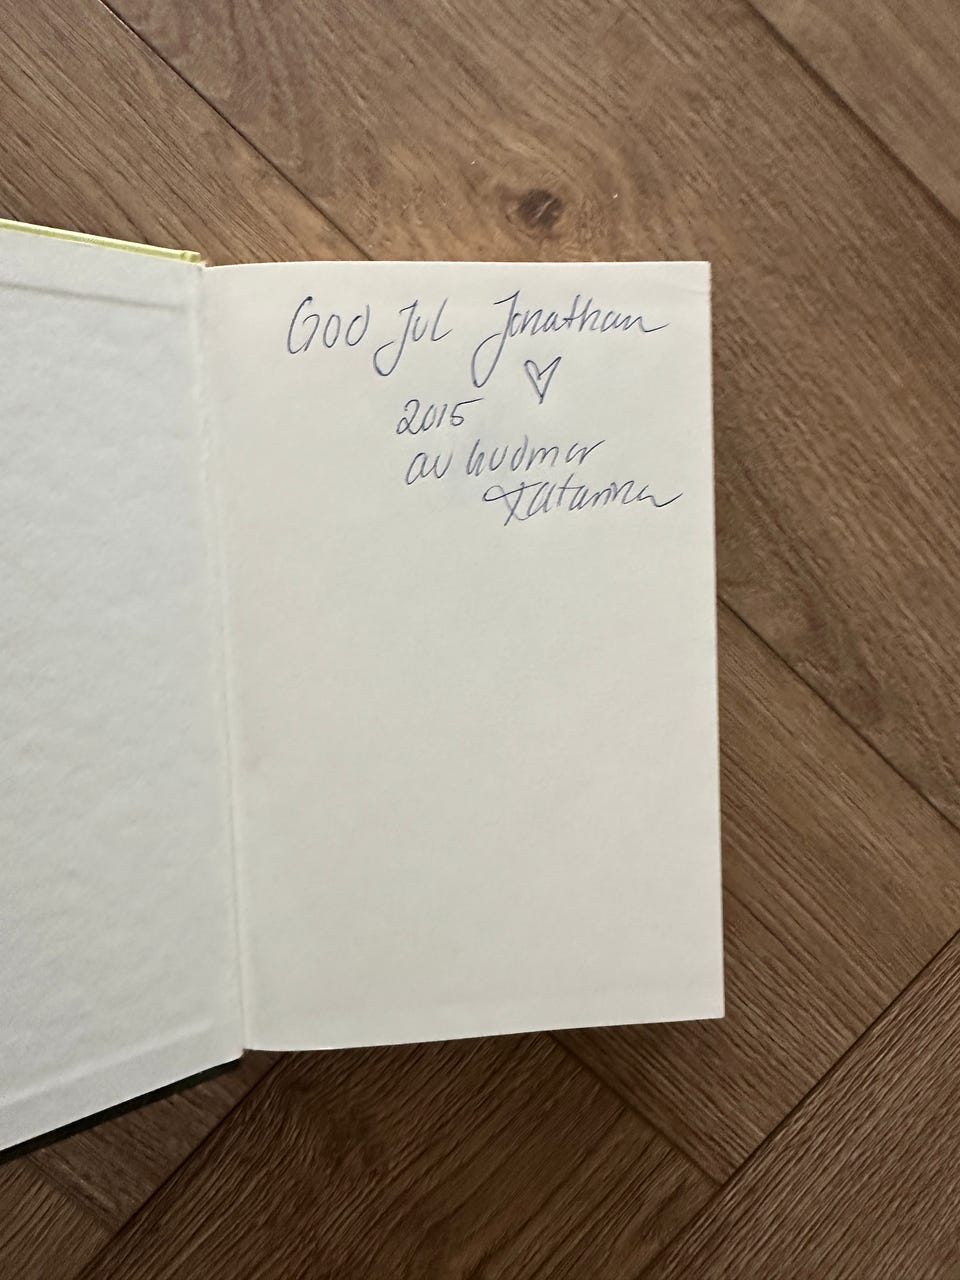 God Jul Jonathan
♡
2015
av Gudmor
Katarina